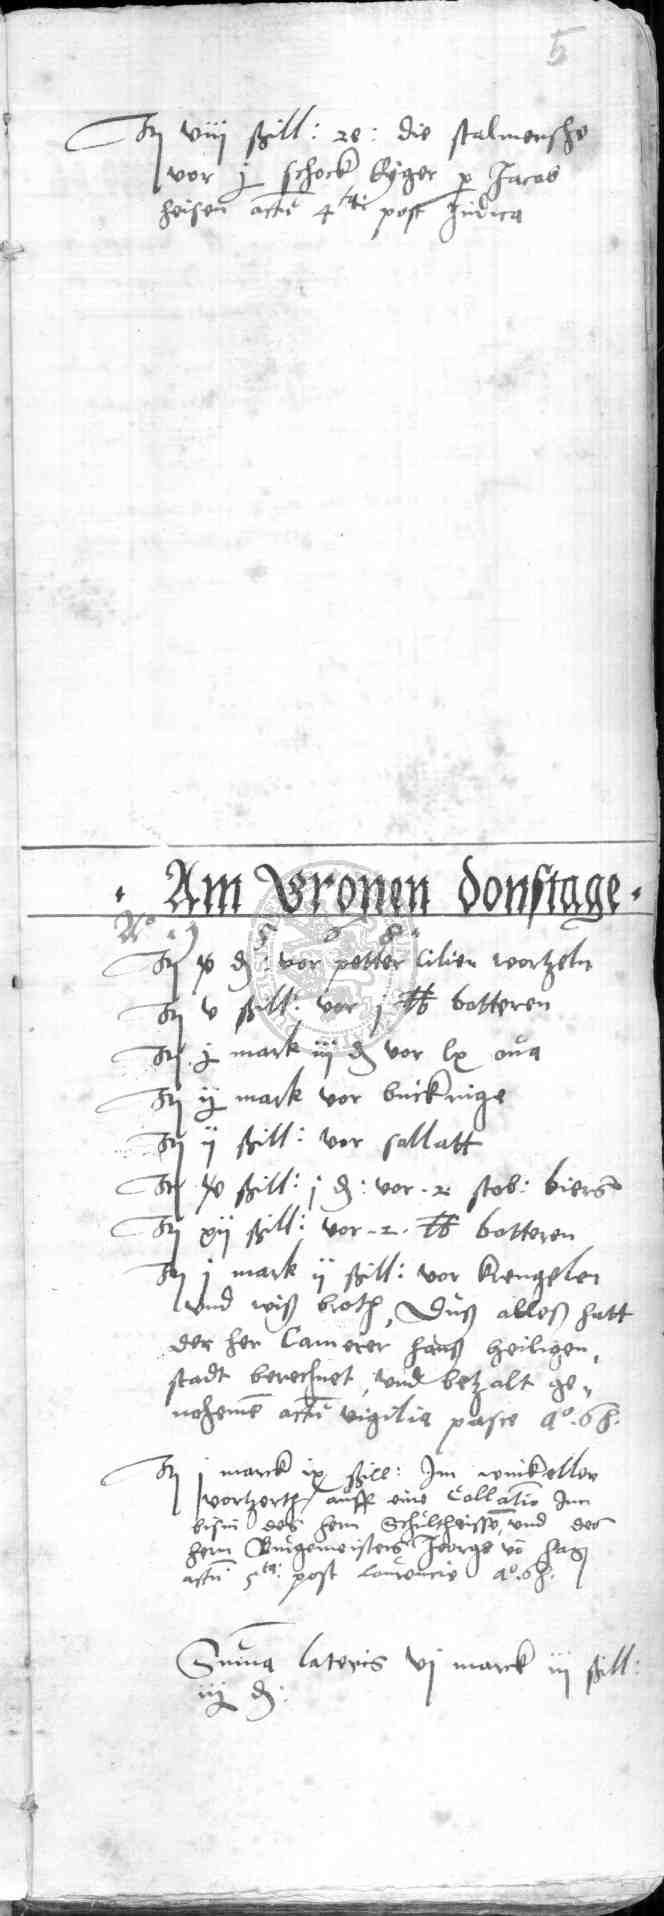 5
It viij ßill: re: die stalmensche
vor j schock Eyger p Jacob
heisen actu 4ta post Judica
Am Vronen donstage
Ao 1568
It x d: vor petter cilien wortzeln
It v ßill: vor j lb botteren
It j mark iij d vor lx oua
It ij mark vor buckinge
It ij ßill: vor sallatt
It xv ßill: j d: vor 2 stob: biers
It xij ßill: vor 2 lb botteren
It j mark ij ßill: vor krengelen
vnd wiß broth, Duß alles hatt
der her Camerer hans heiligen
stadt berechnet, vnd betzalt ge,,
nohemē actū vigilia pasce ao. 68.
It j marck ix ßill: Im winkeller
vortzerth auff eine Collatio Inn
bisin des hern Schultheissē, vnd des
hern Burgemeisters George vō hag
actū 5ta post Laurencii ao. 68.
Suma lateris vj marck iij ßill:
iiij d: